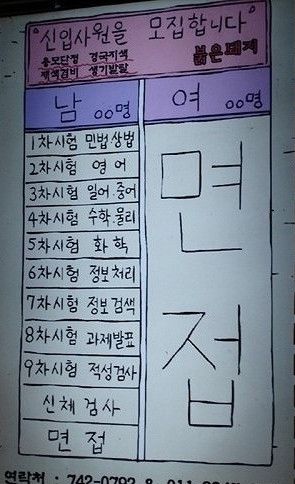 "신입사원을 모집합니다"
용모단정 경국지색
재색겸비 생기발랄
붉은돼지
남 00명
여 00명
1차시험 민법상법
2차시험 영어
3차시험 일어·중어
4차시험 수학·물리
5차시험 화학
6차시험 정보처리
7차시험 정보검색
8차시험 과제발표
9차시험 적성검사
신체검사
면접
면접
연락처 : 742-0792 & 011